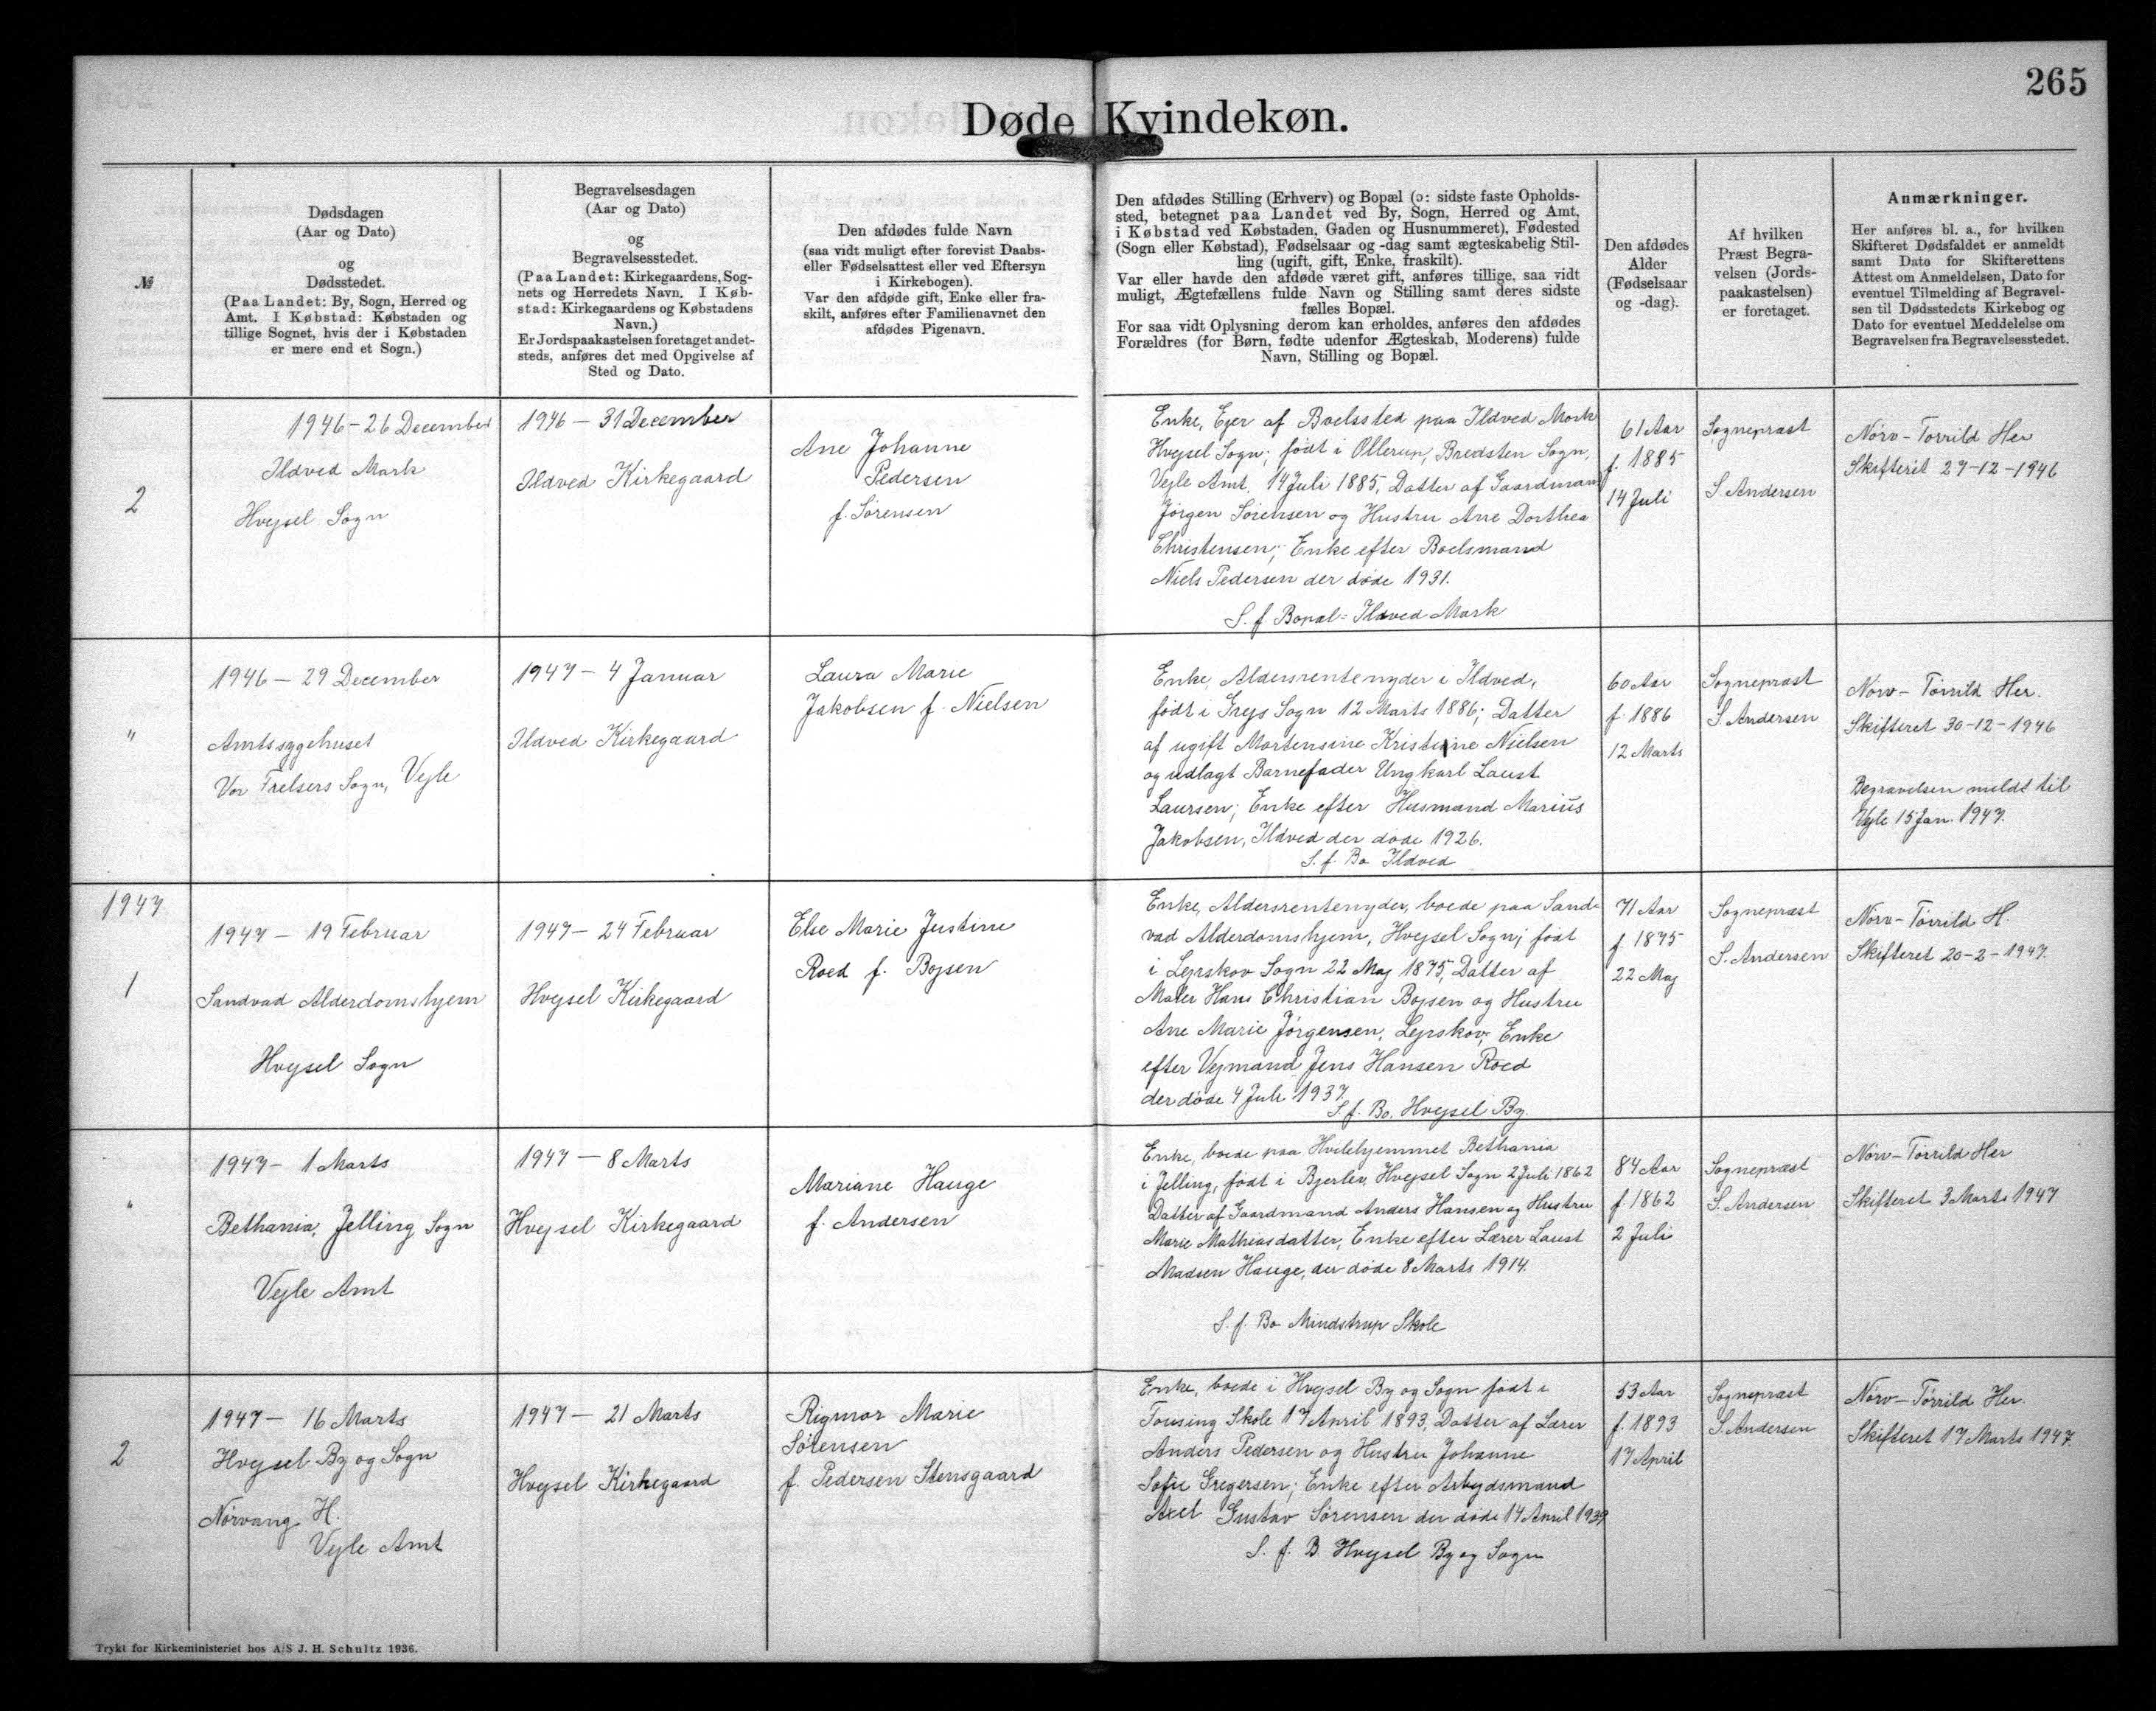 265
Døde Kvindekøn.
№
Dødsdagen
(Aar og Dato)
og
Dødsstedet.
(Paa Landet: By, Sogn, Herred og
Amt. I Købstad: Købstaden og
tillige Sognet, hvis der i Købstaden
er mere end et Sogn.)
Begravelsesdagen
(Aar og Dato)
og
Begravelsesstedet.
(Paa Landet: Kirkegaardens, Sog-
nets og Herredets Navn. I Køb-
stad: Kirkegaardens og Købstadens
Navn.)
Er Jordspaakastelsen foretaget andet-
steds, anføres det med Opgivelse af
Sted og Dato.
Den afdødes fulde Navn
(saa vidt muligt efter forevist Daabs-
eller Fødselsattest eller ved Eftersyn
i Kirkebogen).
Var den afdøde gift, Enke eller fra-
skilt, anføres efter Familienavnet den
afdødes Pigenavn.
Den afdødes Stilling (Erhverv) og Bopæl (ɔ: sidste faste Opholds-
sted, betegnet paa Landet ved By, Sogn, Herred og Amt,
i Købstad ved Købstaden, Gaden og Husnummeret), Fødested
(Sogn eller Købstad), Fødselsaar og -dag samt ægteskabelig Stil-
ling (ugift, gift, Enke, fraskilt).
Var eller havde den afdøde været gift, anføres tillige, saa vidt
muligt, Ægtefællens fulde Navn og Stilling samt deres sidste
fælles Bopæl.
For saa vidt Oplysning derom kan erholdes, anføres den afdødes
Forældres (for Børn, fødte udenfor Ægteskab, Moderens) fulde
Navn, Stilling og Bopæl.
Den afdødes
Alder
(Fødselsaar
og -dag).
Af hvilken
Præst Begra-
velsen (Jords-
paakastelsen)
er foretaget.
Anmærkninger.
Her anføres bl. a., for hvilken
Skifteret Dødsfaldet er anmeldt
samt Dato for Skifterettens
Attest om Anmeldelsen, Dato for
eventuel Tilmelding af Begravel-
sen til Dødsstedets Kirkebog og
Dato for eventuel Meddelelse om
Begravelsen fra Begravelsesstedet.
2
1946 - 26 December
Ildved Mark
Hvejsel Sogn
1946 - 31 December
Ildved Kirkegaard
Ane Johanne
Pedersen
f. Sørensen
Enke, Ejer af Boelssted paa Ildved Mark
Hvejsel Sogn; født i Ollerup, Bredsten Sogn,
Vejle Amt, 14 Juli 1885, Datter af Gaardmand
Jørgen Sørensen og Hustru Ane Dorthea
Christensen; Enke efter Boelsmand
Niels Pedersen der døde 1931.
S. f. Bopæl = Ildved Mark
61 Aar
f. 1885
14 Juli
Sognepræst
S. Andersen
Nørv-Tørrild Her
Skifteret 27-12-1946
"
1946 - 29 December
Amtssygehuset
Vor Frelsers Sogn, Vejle
1947 - 4 Januar
Ildved Kirkegaard
Laura Marie
Jakobsen f. Nielsen
Enke, Aldersrentenyder i Ildved,
født i Grejs Sogn 12 Marts 1886; Datter
af ugift Mortensine Kristine Nielsen
og udlagt Barnefader Ungkarl Laust
Laursen; Enke efter Husmand Marius
Jakobsen, Ildved der døde 1926.
S. f. Bo Ildved
60 Aar
f. 1886
12 Marts
Sognepræst
S. Andersen
Nørv-Tørrild Her.
Skifteret 30-12-1946
Begravelsen meldt til
Vejle 15 Jan. 1947.
1947
1
1947 - 19 Februar
Sandvad Alderdomshjem
Hvejsel Sogn
1947 - 24 Februar
Hvejsel Kirkegaard
Else Marie Justine
Roed f. Bojsen
Enke, Aldersrentenyder, boede paa Sand-
vad Alderdomshjem, Hvejsel Sogn; født
i Lejrskov Sogn 22 Maj 1875, Datter af
Maler Hans Christian Bojsen og Hustru
Ane Marie Jørgensen, Lejrskov; Enke
efter Vejmand Jens Hansen Roed
der døde 4 Juli 1937.
S. f. Bo. Hvejsel By.
71 Aar
f. 1875
22 Maj
Sognepræst
S. Andersen
Nørv-Tørrild H
Skifteret 20-2-1947.
"
1947 - 1 Marts
Bethania, Jelling Sogn
Vejle Amt
1947 - 8 Marts
Hvejsel Kirkegaard
Mariane Hauge
f. Andersen
Enke, boede paa Hvilehjemmet Bethania
i Jelling, født i Bjerlev, Hvejsel Sogn 2 Juli 1862
Datter af Gaardmand Anders Hansen og Hustru
Marie Mathiasdatter, Enke efter Lærer Laust
Madsen Hauge, der døde 8 Marts 1914.
S. f. Bo Mindstrup Skole
84 Aar
f 1862
2 Juli
Sognepræst
S. Andersen
Nørv-Tørrild Her
Skifteret 3 Marts 1947
2
1947 - 16 Marts
Hvejsel By og Sogn
Nørvang H.
Vejle Amt
1947 - 21 Marts
Hvejsel Kirkegaard
Rigmor Marie
Sørensen
f. Pedersen Stensgaard
Enke, boede i Hvejsel By og Sogn født i
Tousing Skole 17 April 1893, Datter af Lærer
Anders Pedersen og Hustru Johanne
Sofie Gregersen; Enke efter Arbejdsmand
Axel Gustav Sørensen der døde 14 April 1939
S. f. B Hvejsel By og Sogn
53 Aar
f. 1893
17 April
Sognepræst
S. Andersen
Nørv-Tørrild Her.
Skifteret 17 Marts 1947.
Trykt for Kirkeministeriet hos A/S J. H. Schultz 1936.